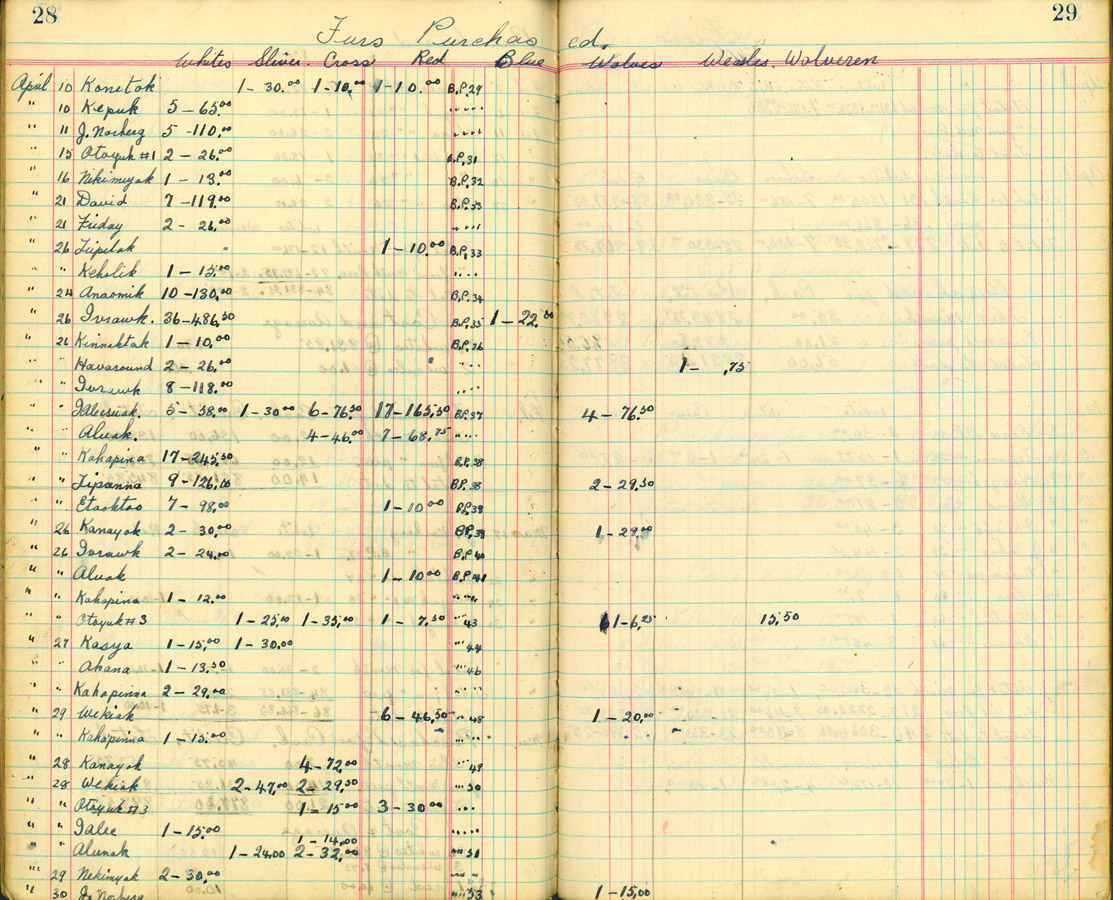 28 29
Furs Purchased.
Whites Sliver. Cross Red Blue Wolves Weasles. Wolveren
April 10 Konetok 1 - 30.00 1 - 10.00 1 - 10.00 B.P. 29
" 10 Kepuk 5 - 65.00 " " " "
" 11 J. Norberg 5 - 110.00 " " " "
" 15 Otoyuk #1 2 - 26.00 B.P. 31
" 16 Nikimiyok 1 - 13.00 B.P. 32
" 21 David 7 - 119.00 B.P. 33
" 21 Friday 2 - 26.00 " " " "
" 26 Tipilok 1 - 10.00 B.P. 33
" " Keholik 1 - 15.00 " " " "
" 24 Anaomik 10 - 130.00 B.P. 34
" 26 Ivrawk. 36 - 486.50 B.P. 35 1 - 22.00
" 26 Kinnektak 1 - 10.00 B.P. 36
" " Havasound 2 - 26.00 " " " 1 - .75
" " Ivrawk 8 - 118.00 " " " "
" " 5 - 38.00 1 - 30.00 6 - 76.50 17 - 165.50 B.P. 37 4 - 76.50
" " Aluak. 4 - 46.00 7 - 68.75 " " " "
" " Kahapina 17 - 245.50 B.P. 38
" " Tipanna 9 - 126.00 B.P. 38 2 - 29.50
" " Etaoktoo 7 - 98.00 1 - 10.00 B.P. 39
" 26 Kanayok 2 - 30.00 B.P. 39 1 - 29.00
" 26 Ivrawk 2 - 24.00 B.P. 40
" " Aluak 1 - 10.00 B.P. 41
" " Kahapina 1 - 12.00 " " " "
" " Otoyuk #3 1 - 25.00 1 - 35.00 1 - 7.50 " " 43 1 - 6.25 15.50
" 27 Kasya 1 - 15.00 1 - 30.00 " " 44
" " Akana 1 - 13.50 " " 46
" " Kahapinna 2 - 29.00 " " " "
" 29 Wekiak 6 - 46.50 " " 48 1 - 20.00
" " Kahapinna 1 - 15.00 " " " "
" 28 Kanayok 4 - 72.00 " " 49
" 28 Wekiak 2 - 47.00 2 - 29.50 " " 50
" " Otoyuk #3 1 - 15.00 3 - 30.00 " " " "
" " Jalee 1 - 15.00 1 - 14.00 " " " "
" " Alunak 1 - 24.00 2 - 32.00 " " 51
" 29 Nekimyok 2 - 30.00
" 30 J. Norberg " " 53 1 - 15.00